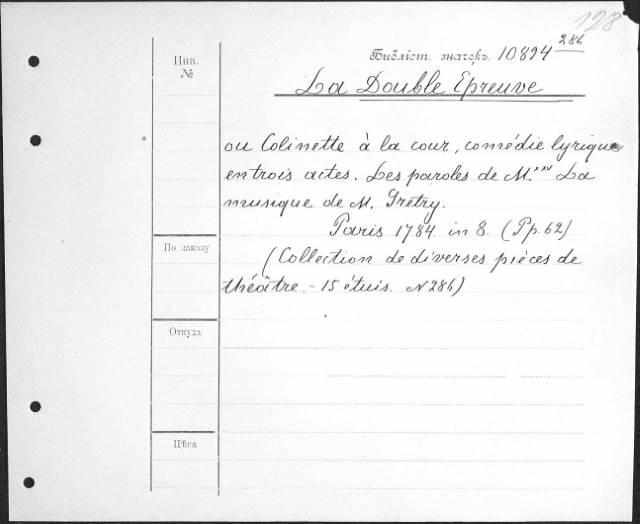 128
Инв.
№
Библіот. значекъ. 10894 286
La Double Epreuve
ou Colinette à la cour, comédie lyrique
en trois actes. Les paroles de M.*** La
musique de M. Gretry.
Paris 1784 in 8. (Pp. 62)
По заказу
(Collection de diverses pièces de
théâtre. - 15 étuis. N 286)
Откуда
Цѣна